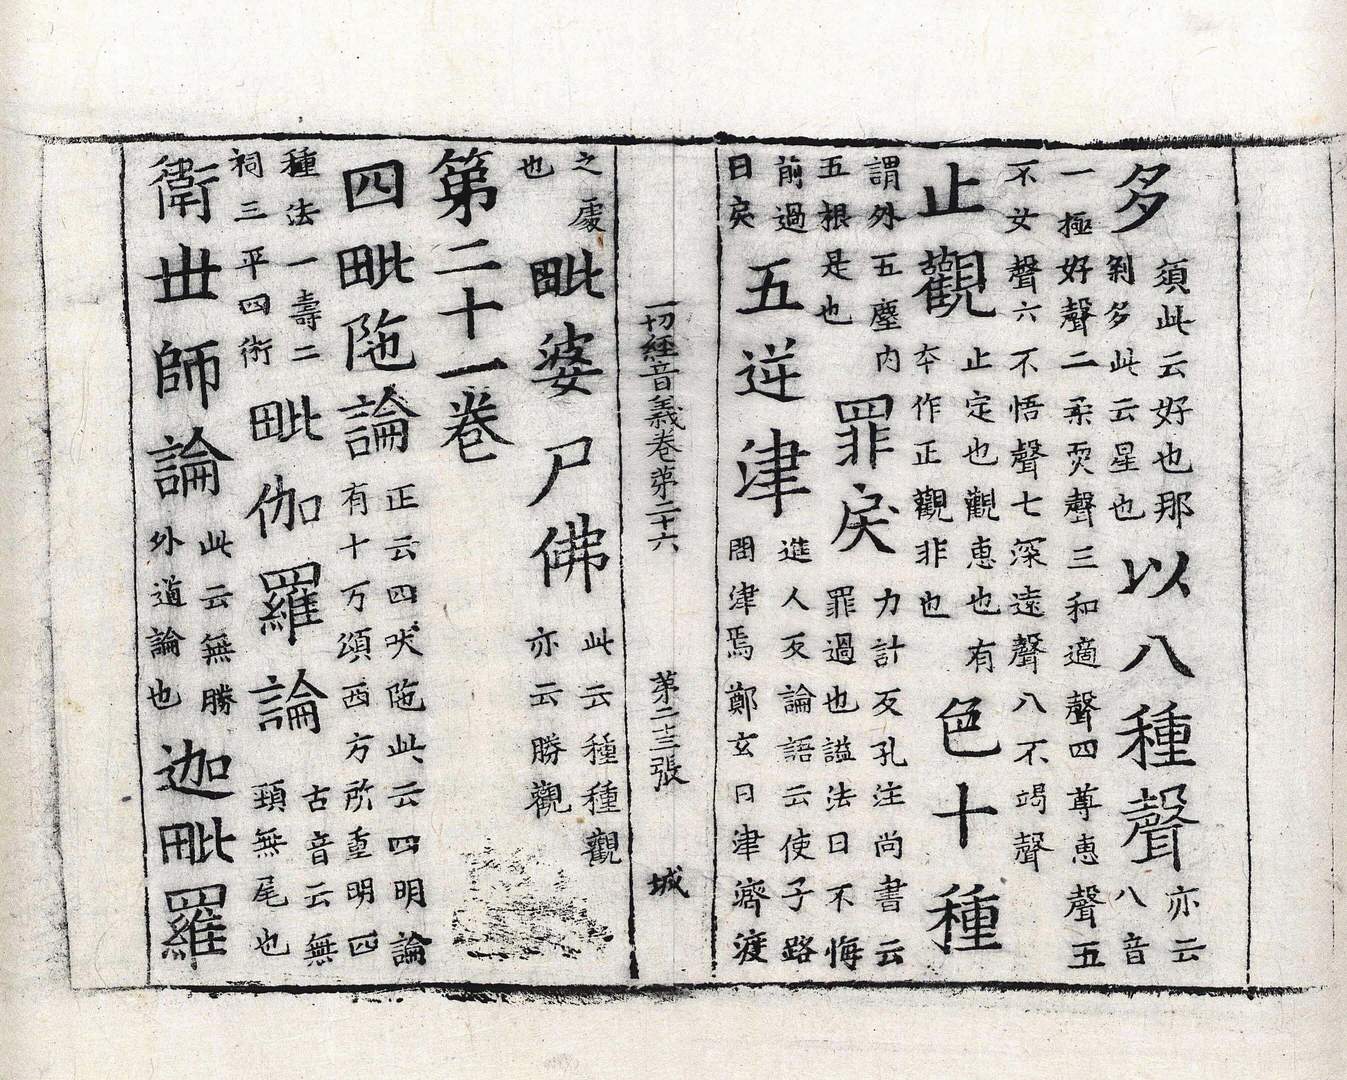 多須此云好也那剎多此云星也以八種聲亦云八音
一極好聲二柔耎聲三和適聲四尊恵聲五不女聲六不悟聲七深遠聲八不竭聲
止觀止定也觀恵也有夲作正觀非也色十種
謂外五塵内五根是也罪戾力計反孔注尚書云罪過也謚法曰不悔
前過曰戾五逆津進人反論語云使子路問津焉鄭玄曰津濟渡
一切經音義卷第二十六 第二十三張 城
之處也毗婆尸佛此云種種觀亦云勝觀
第二十一卷
四毗陁論正云四吠陁此云四明論有十万頌西方所重明四
種法一壽二祠三平四術毗伽羅論古音云無頚無尾也
衛世師論此云無勝外道論也迦毗羅